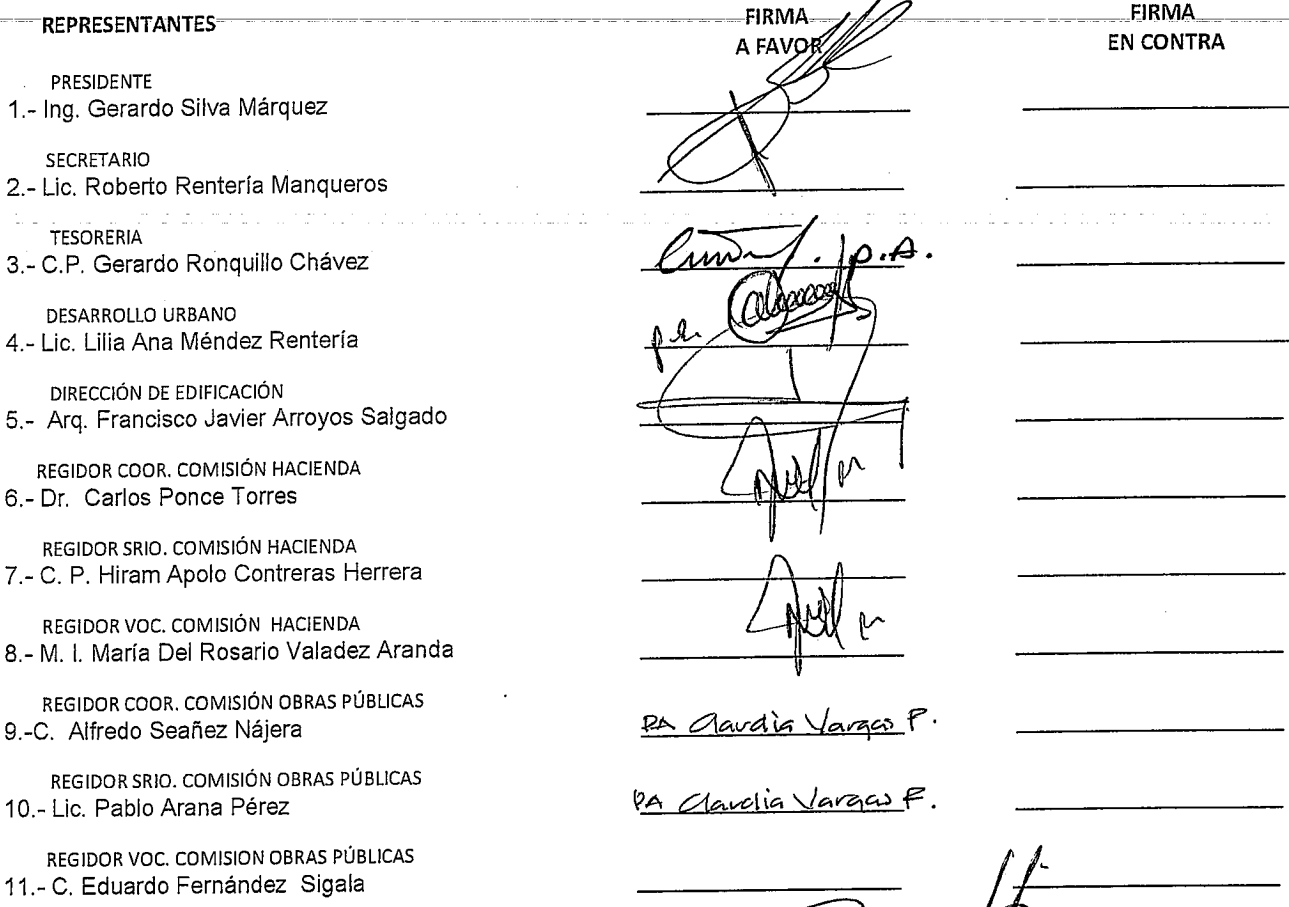 REPRESENTANTES
FIRMA
A FAVOR
FIRMA
EN CONTRA
PRESIDENTE
1.- Ing. Gerardo Silva Márquez
SECRETARIO
2.- Lic. Roberto Rentería Manqueros
TESORERIA
3.- C.P. Gerardo Ronquillo Chávez
P.A.
DESARROLLO URBANO
4.- Lic. Lilia Ana Méndez Rentería
DIRECCIÓN DE EDIFICACIÓN
5.- Arq. Francisco Javier Arroyos Salgado
REGIDOR COOR. COMISIÓN HACIENDA
6.- Dr. Carlos Ponce Torres
REGIDOR SRIO. COMISIÓN HACIENDA
7.- C. P. Hiram Apolo Contreras Herrera
REGIDOR VOC. COMISIÓN HACIENDA
8.- M. I. María Del Rosario Valadez Aranda
REGIDOR COOR. COMISIÓN OBRAS PÚBLICAS
9.-C. Alfredo Seañez Nájera
PA Claudia Vargas P.
REGIDOR SRIO. COMISIÓN OBRAS PÚBLICAS
10.- Lic. Pablo Arana Pérez
PA Claudia Vargas P.
REGIDOR VOC. COMISION OBRAS PÚBLICAS
11.- C. Eduardo Fernández Sigala